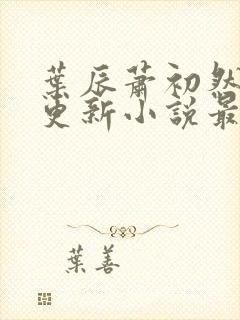 葉辰蕭初然
更新小說最
葉善